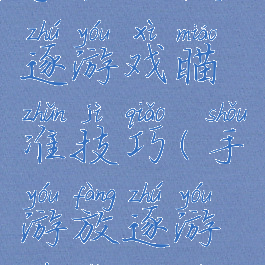 zhú yóu xì miáo
逐游戏瞄
zhǔn jì qiǎo shǒu
准技巧(手
yóu fàng zhú yóu
游放逐游